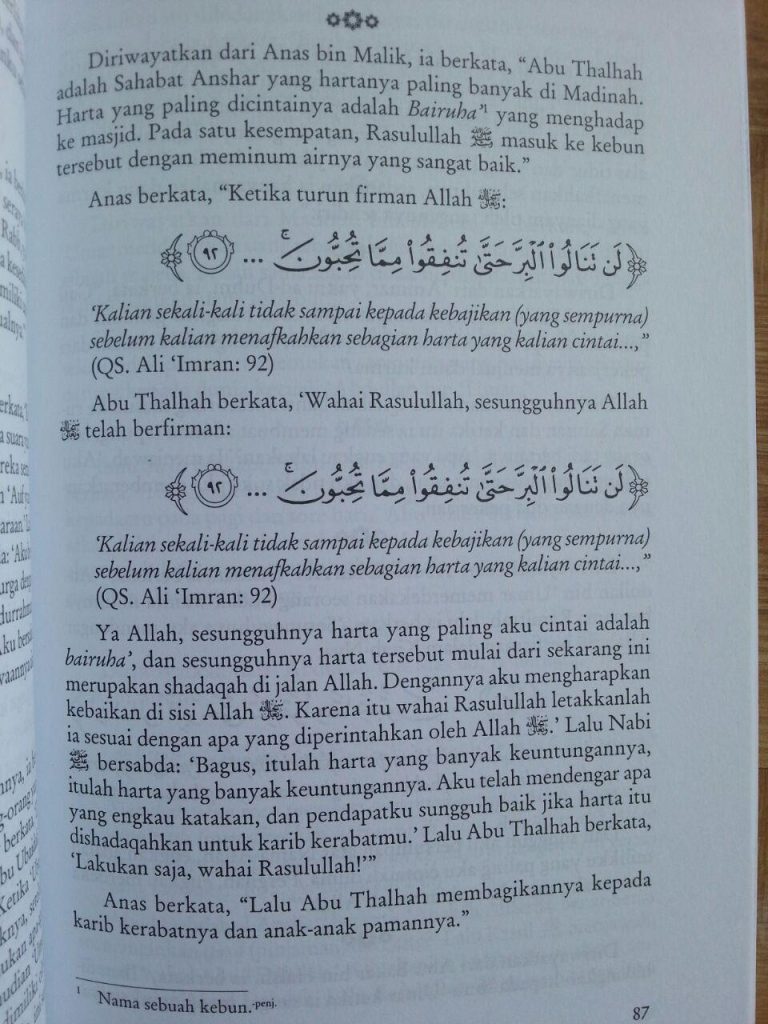 Diriwayatkan dari Anas bin Malik, ia berkata, “Abu Thalhah
adalah Sahabat Anshar yang hartanya paling banyak di Madinah.
Harta yang paling dicintainya adalah Bairuha’¹ yang menghadap
ke masjid. Pada satu kesempatan, Rasulullah ﷺ masuk ke kebun
tersebut dengan meminum airnya yang sangat baik.”
Anas berkata, “Ketika turun firman Allah :
﴿لَن تَنَالُوا۟ ٱلْبِرَّ حَتَّىٰ تُنفِقُوا۟ مِمَّا تُحِبُّونَ ۚ ... ٩٢﴾
‘Kalian sekali-kali tidak sampai kepada kebajikan (yang sempurna)
sebelum kalian menafkahkan sebagian harta yang kalian cintai...,”
(QS. Ali ‘Imran: 92)
Abu Thalhah berkata, ‘Wahai Rasulullah, sesungguhnya Allah
telah berfirman:
﴿لَن تَنَالُوا۟ ٱلْبِرَّ حَتَّىٰ تُنفِقُوا۟ مِمَّا تُحِبُّونَ ۚ ... ٩٢﴾
‘Kalian sekali-kali tidak sampai kepada kebajikan (yang sempurna)
sebelum kalian menafkahkan sebagian harta yang kalian cintai...,”
(QS. Ali ‘Imran: 92)
Ya Allah, sesungguhnya harta yang paling aku cintai adalah
bairuha’, dan sesungguhnya harta tersebut mulai dari sekarang ini
merupakan shadaqah di jalan Allah. Dengannya aku mengharapkan
kebaikan di sisi Allah . Karena itu wahai Rasulullah letakkanlah
ia sesuai dengan apa yang diperintahkan oleh Allah .’ Lalu Nabi
ﷺ bersabda: ‘Bagus, itulah harta yang banyak keuntungannya,
itulah harta yang banyak keuntungannya. Aku telah mendengar apa
yang engkau katakan, dan pendapatku sungguh baik jika harta itu
dishadaqahkan untuk karib kerabatmu.’ Lalu Abu Thalhah berkata,
‘Lakukan saja, wahai Rasulullah!’”
Anas berkata, “Lalu Abu Thalhah membagikannya kepada
karib kerabatnya dan anak-anak pamannya.”
¹ Nama sebuah kebun.-penj.
87